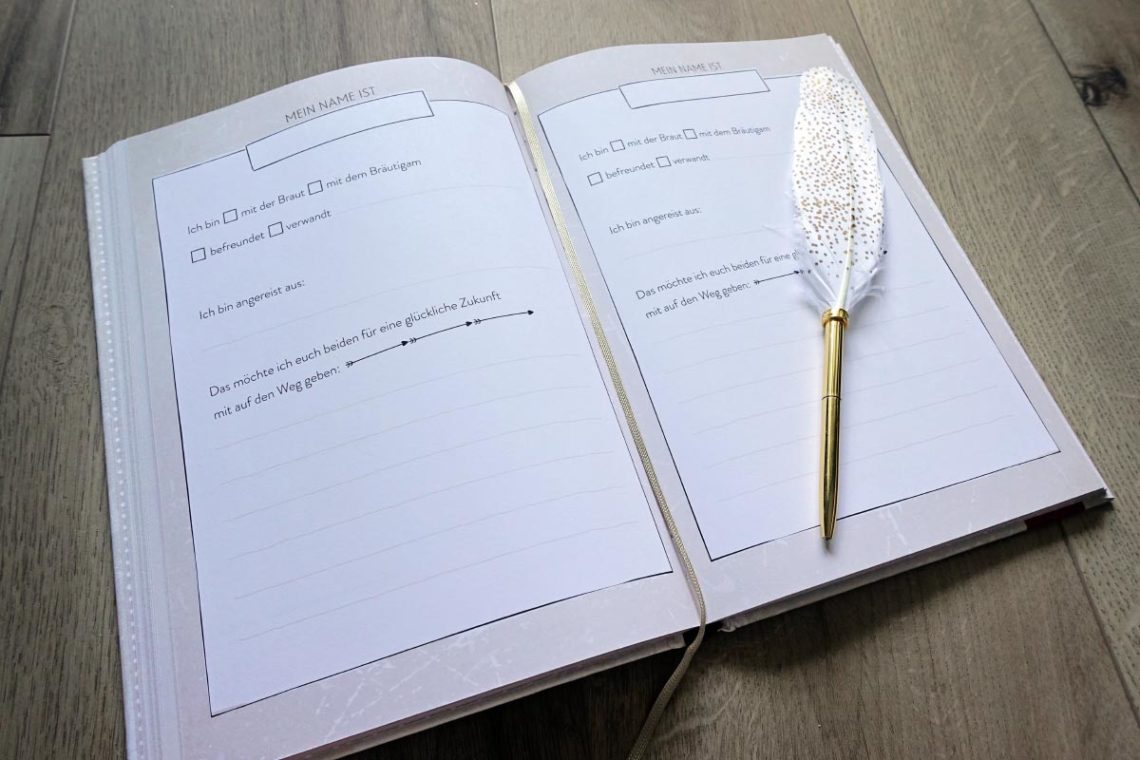 MEIN NAME IST
Ich bin mit der Braut mit dem Bräutigam
befreundet verwandt
Ich bin angereist aus:
Das möchte ich euch beiden für eine glückliche Zukunft
mit auf den Weg geben:
MEIN NAME IST
Ich bin mit der Braut mit dem Bräutigam
befreundet verwandt
Ich bin angereist aus:
Das möchte ich euch beiden für eine
mit auf den Weg geben: